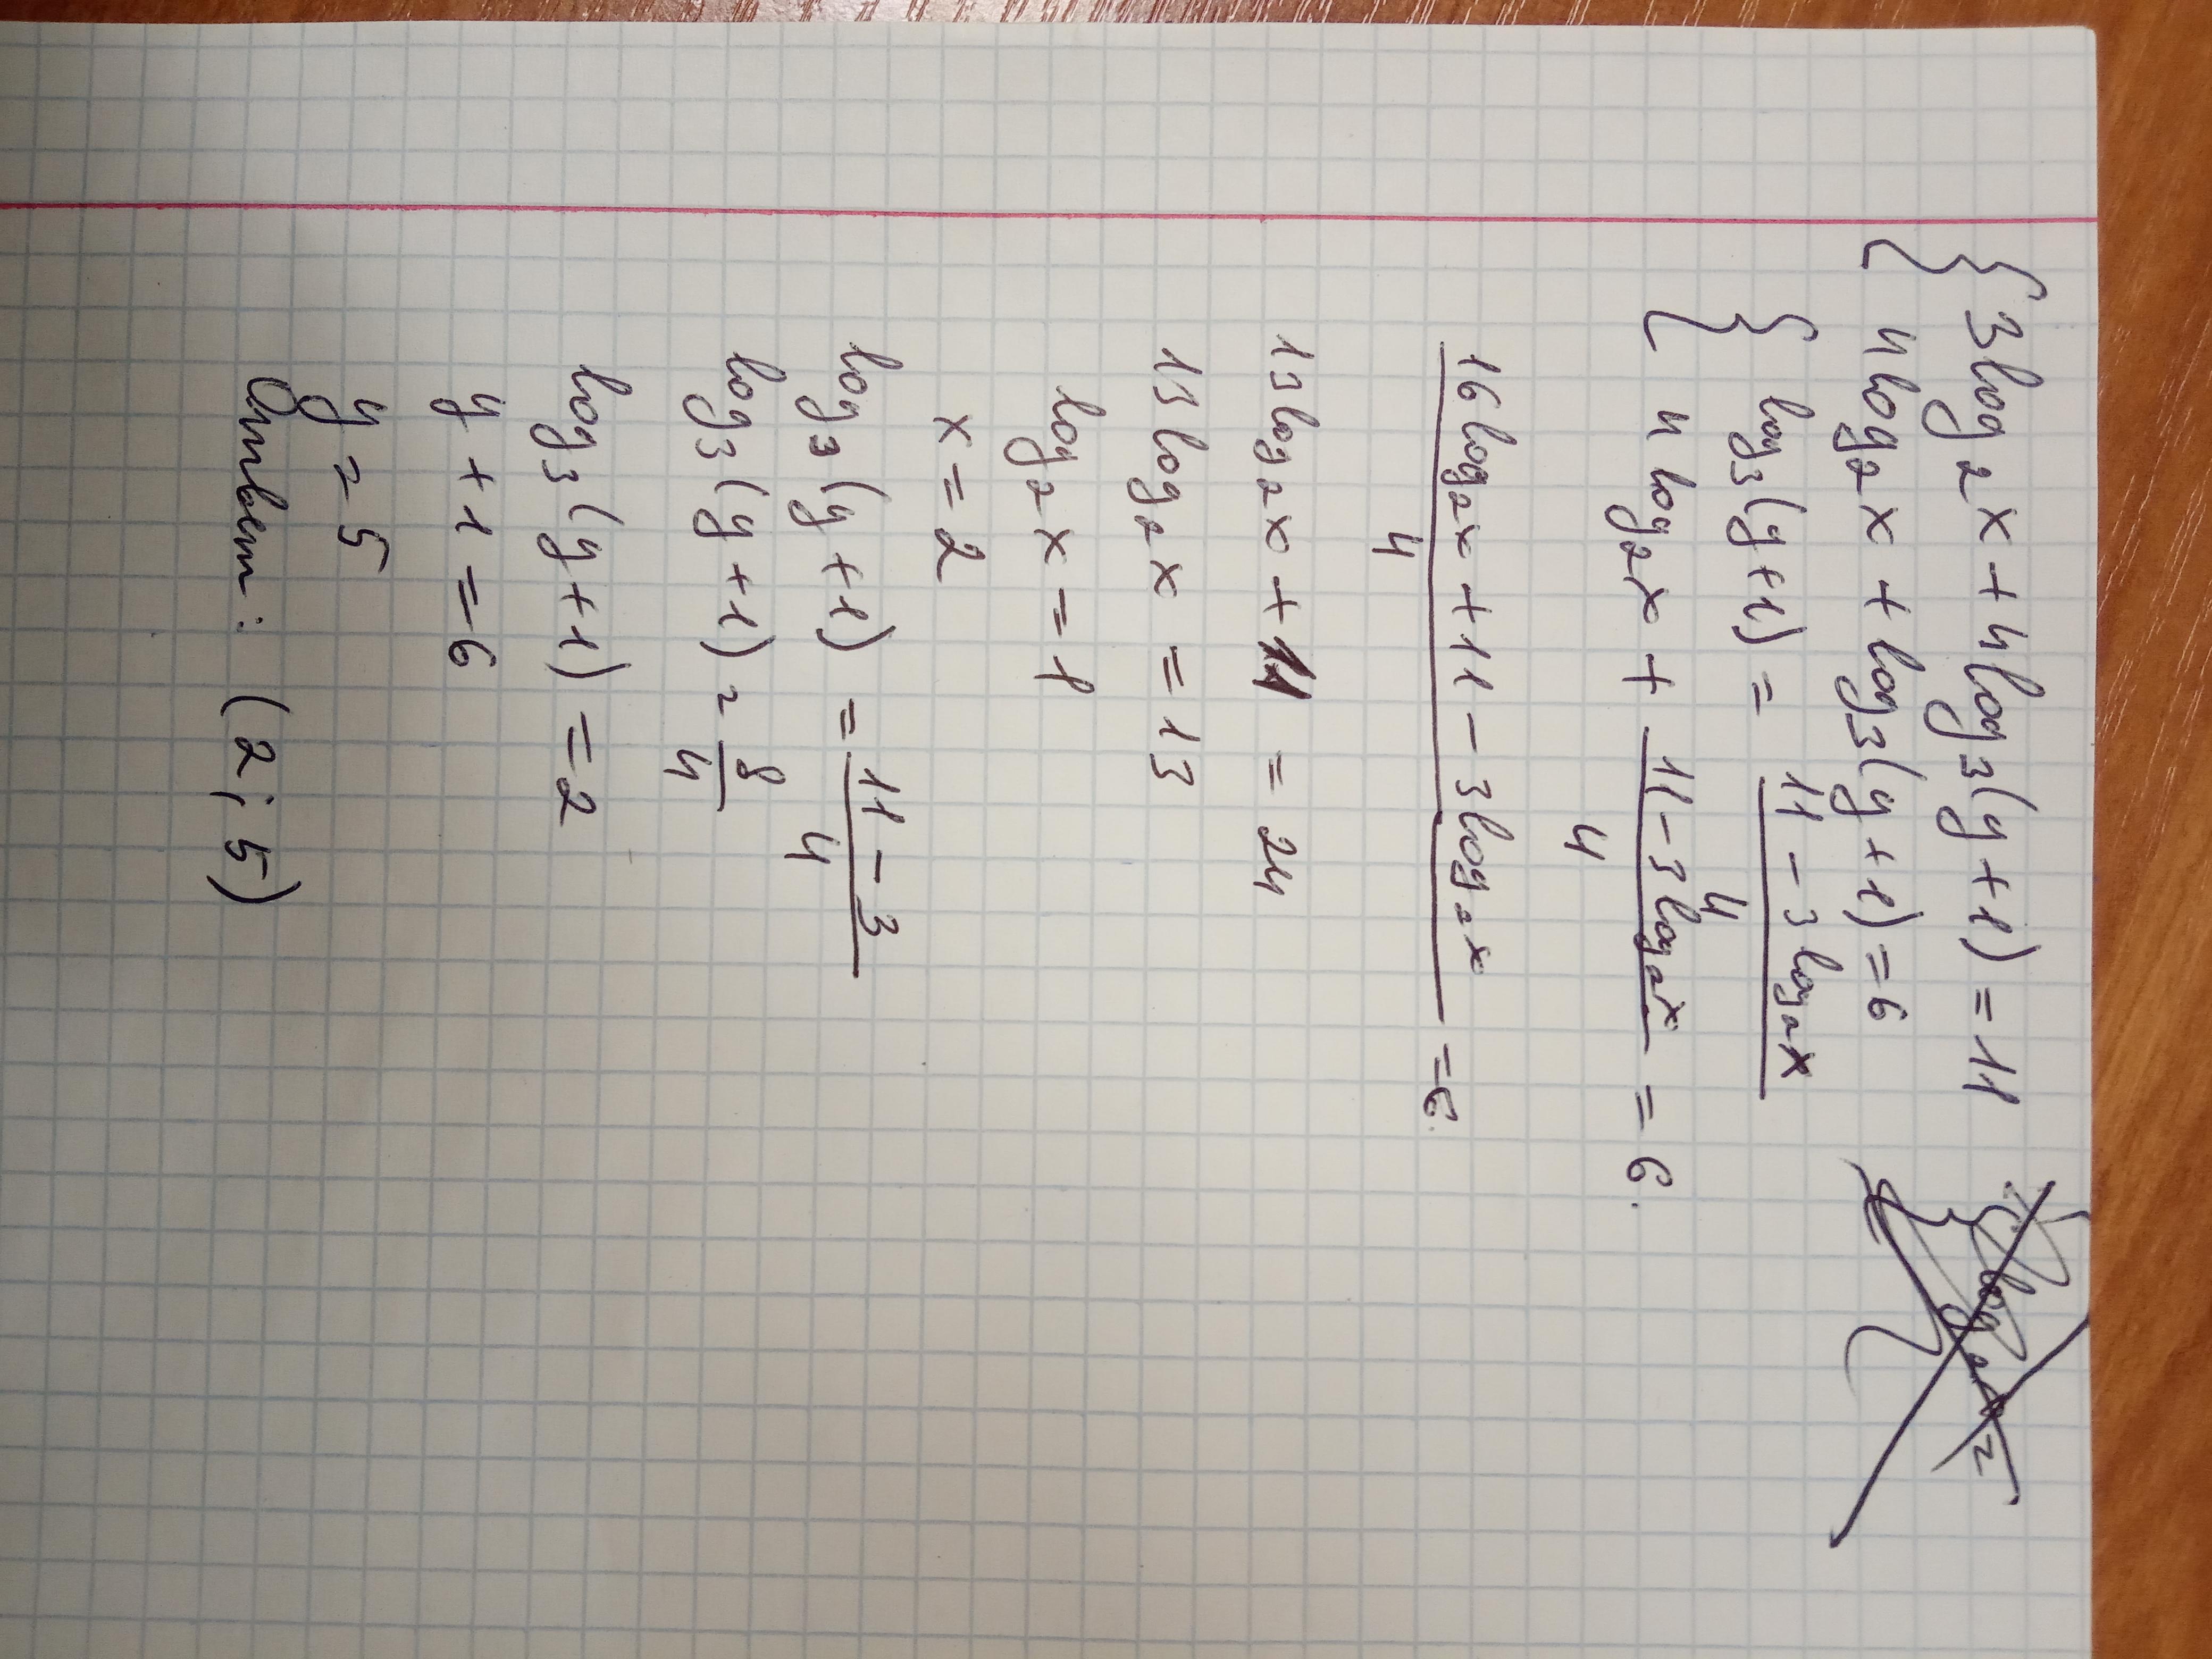 { 3log₂x + 4log₃(y+1) = 11
{ 4log₂x + log₃(y+1) = 6
{ log₃(y+1) = (11 - 3log₂x)/4
{ 4log₂x + (11 - 3log₂x)/4 = 6.
(16log₂x + 11 - 3log₂x)/4 = 6.
13log₂x + 11 = 24
13log₂x = 13
log₂x = 1
x = 2
log₃(y+1) = (11 - 3)/4
log₃(y+1) = 8/4
log₃(y+1) = 2
y + 1 = 6
y = 5
Ответ: (2; 5)